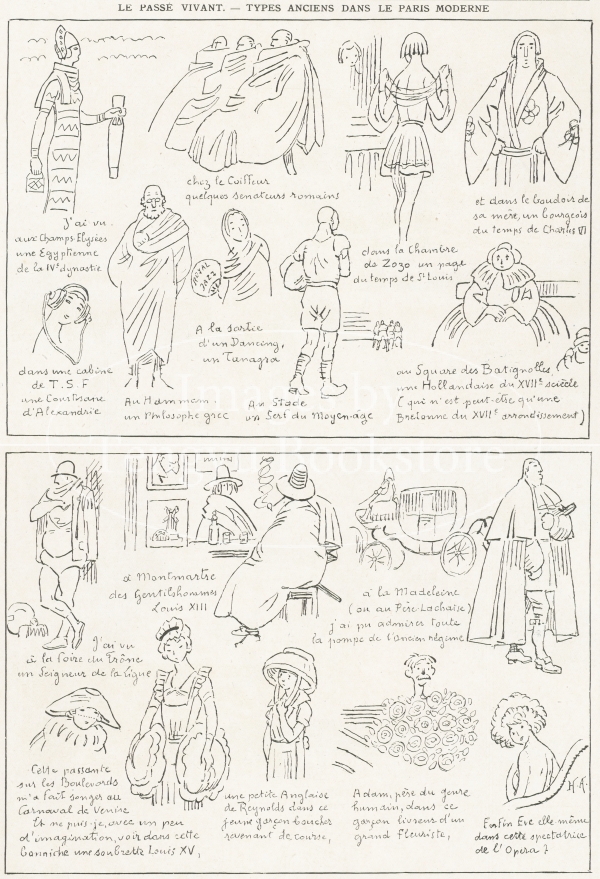 LE PASSÉ VIVANT. — TYPES ANCIENS DANS LE PARIS MODERNE
J'ai vu
aux Champs-Elysées
une Egyptienne
de la IVe dynastie
chez le Coiffeur
quelques senateurs romains
dans la Chambre
de Zozo un page
du temps de St Louis
et dans le boudoir de
sa mère, un bourgeois
du temps de Charles VI
dans une cabine
de T.S.F
une Courtisane
d'Alexandrie
Au Hammam
un Philosophe grec
A la sortie
d'un Dancing,
un Tanagra
Au Stade
un Serf du Moyen-age
au Square des Batignolles,
une Hollandaise du XVIIe siècle
(qui n'est peut-etre qu'une
Bretonne du XVIIe arrondissement)
J'ai vu
à la Foire du Trône
un Seigneur de la Ligue
à Montmartre
des Gentilshommes
Louis XIII
à la Madeleine
(ou au Père-Lachaise)
j'ai pu admirer toute
la pompe de l'ancien régime
Cette passante
sur les Boulevards
m'a fait songer au
Carnaval de Venise
Et ne puis-je, avec un peu
d'imagination, voir dans cette
une soubrette Louis XV,
une petite Anglaise
de Reynolds dans ce
jeune garçon boucher
revenant de course,
Adam, père du genre
humain, dans ce
garçon livreur d'un
grand fleuriste,
Enfin Eve elle même
dans cette spectatrice
de l'Opera ?
H.A.
Images by
Bookstore